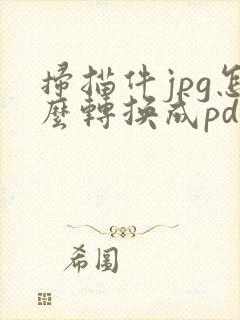 掃描件jpg怎
麼轉換成pd
希圖